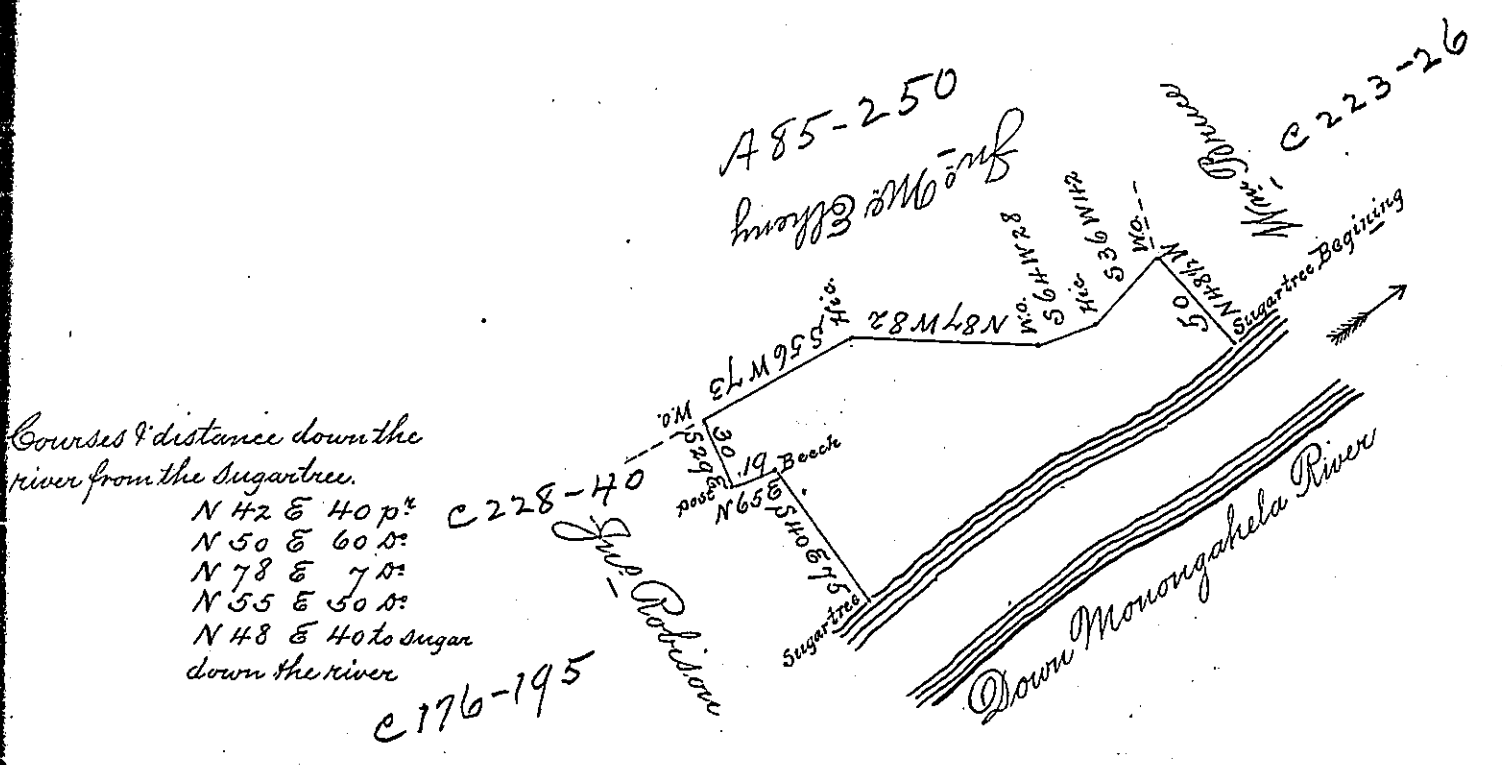 A85-250
Jno. McElheny
Wm Bruce
C223-26
Sugartree Begining
N48½W
50
W.O.
S36W42
Hic.
S64W28
W.O.
N87W82
Hic.
S56W73
W.O.
S29E
30
Post
N65E
19
Beech
S40E75
Sugartree
Down Monongahela River
Courses & distance down the
river from the Sugartree.
N 42 E 40 prs
N 50 E 60 Do
N 78 E 7 Do
N 55 E 50 Do
N 48 E 40 to sugar
down the river
C228-40
Jno. Robison
C176-195